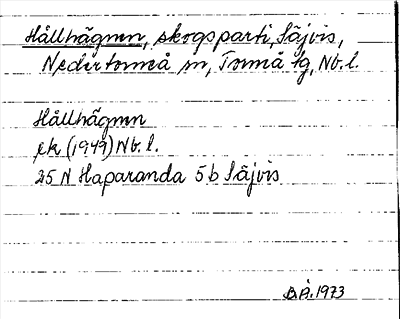 Hållhägnen, skogsparti, Säjvis,
Nedertorneå sn, Torneå tg, Nb. l.
Hållhägnen
ek (1949) Nb. l.
25 N Haparanda 5 b Säjvis
B.Å. 1973